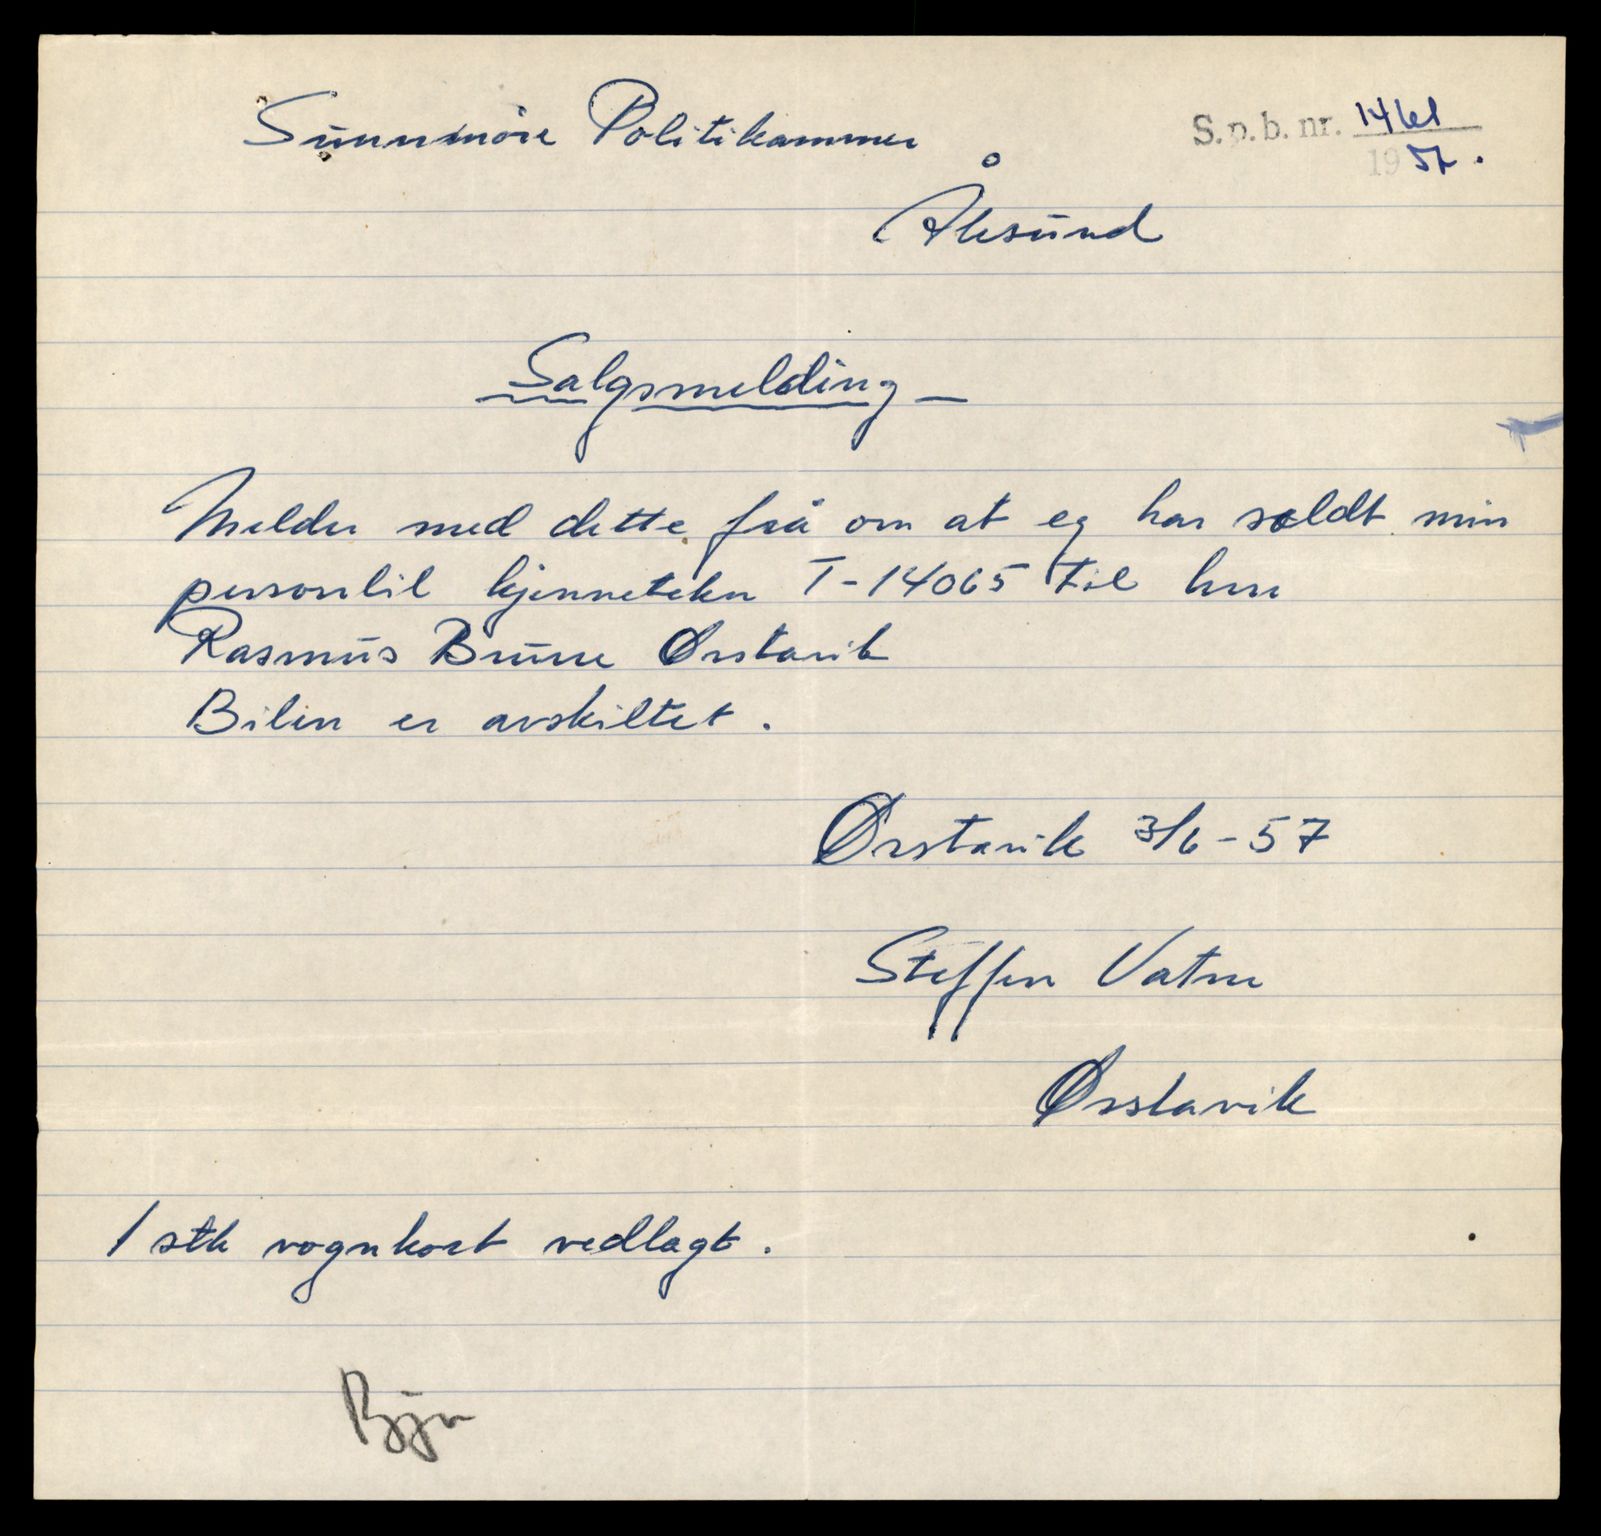 Sunnmöre Politikammer
S.p.b. nr. 1461
1957.
Ålesund
Salgsmelding
Melder med dette frå om at eg har soldt min
personbil kjenneteken T-14065 til herr
Rasmus Brune Ørstavik
Bilen er avskiltet.
Ørstavik 3/6-57
Steffen Vatne
Ørstavik
1 stk vognkort vedlagt.